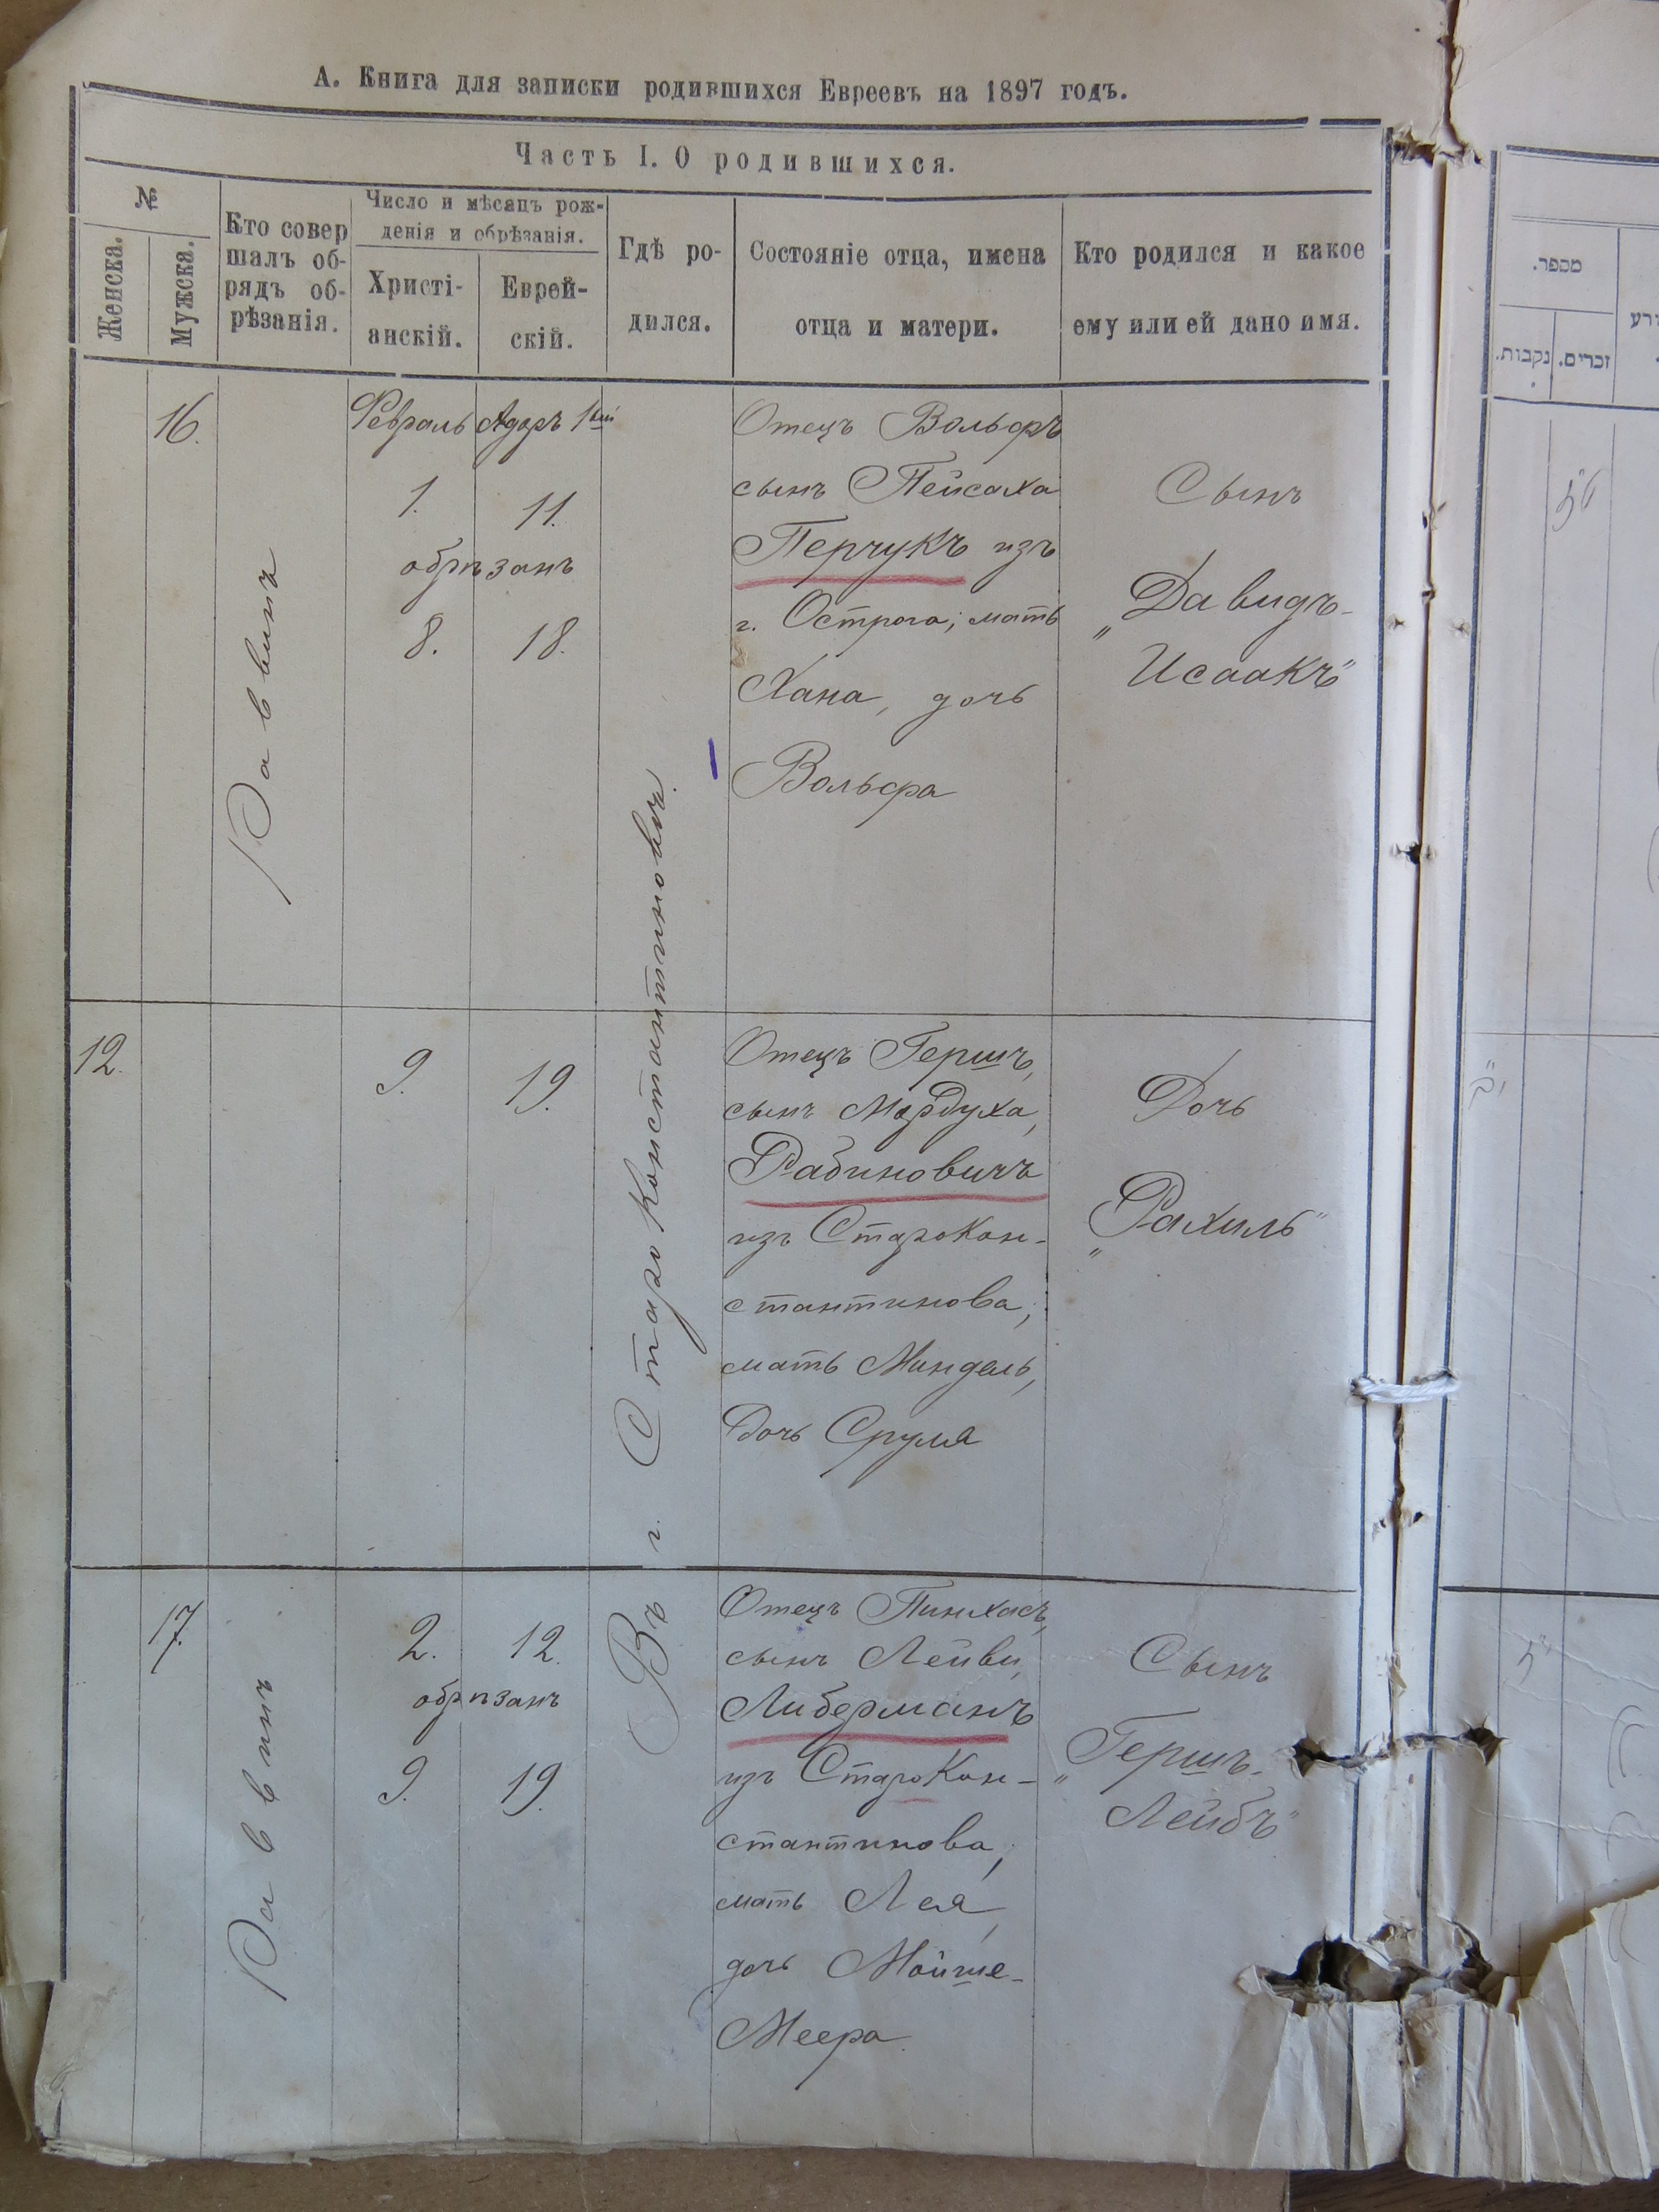 А. Книга для записки родившихся Евреевъ на 1897 годъ.
Часть I. О родившихся.
№
Женска.
Мужска.
Кто совер
шалъ об-
рядъ об-
рѣзанія.
Число и мѣсяцъ рож-
денія и обрѣзанія.
Христі-
анскій.
Еврей-
скій.
Гдѣ ро-
дился.
Состояніе отца, имена
отца и матери.
Кто родился и какое
ему или ей дано имя.
16.
Раввинъ
Февраль Адаръ 1ый
1. 11.
обрѣзанъ
8. 18.
Въ г. Староконстантиновѣ.
Отецъ Вольфъ
сынъ Пейсаха
Перчукъ изъ
г. Острога; мать
Хана, дочь
Вольфа
Сынъ
„Давидъ-
Исаакъ"
12.
9. 19.
Отецъ Гершъ,
сынъ Мордуха,
Рабиновичъ
изъ Старокон-
стантинова;
мать Миндель,
дочь Сруля
Дочь
„Рахиль"
17.
Раввинъ
2. 12.
обрѣзанъ
9. 19.
Отецъ Пинхасъ,
сынъ Лейви,
Либерманъ
изъ Старокон-
стантинова;
мать Лея,
дочь Мойше-
Меера.
Сынъ
„Гершъ-
Лейбъ"
מספר.
נקבות.
זכרים.